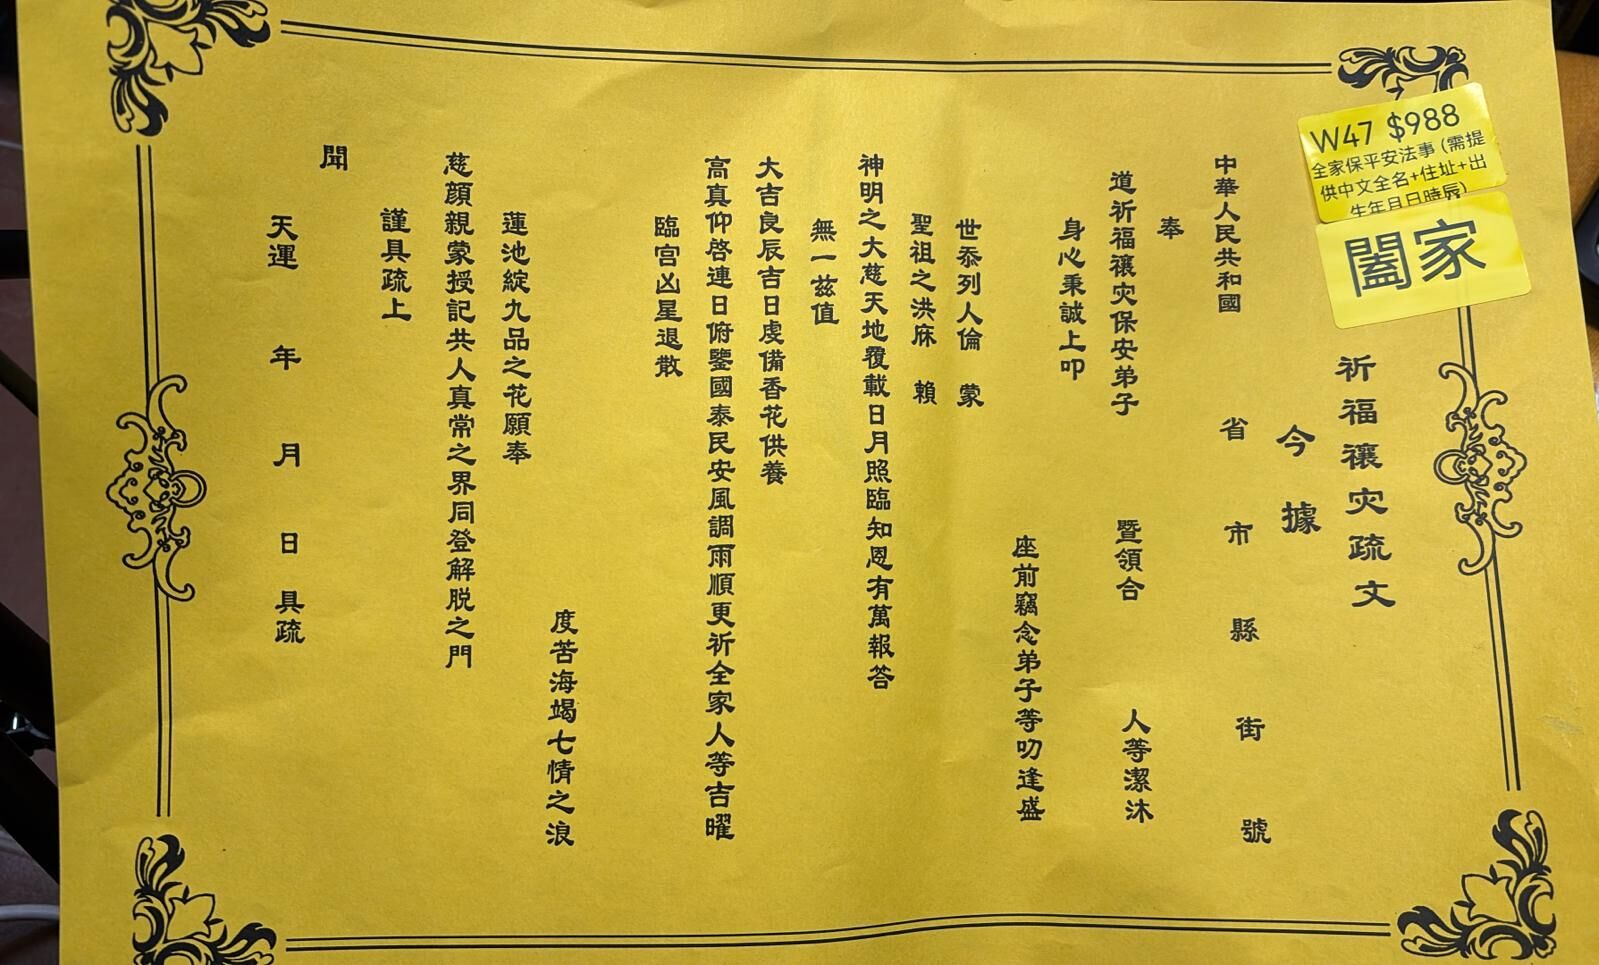 W47 $988
全家保平安法事 (需提
供中文全名+住址+出
生年月日時辰)
闔家
祈福禳灾疏文
今據
中華人民共和國 省 市 縣 街 號
奉
道祈福禳灾保安弟子 暨領合 人等潔沐
身心秉誠上叩
座前竊念弟子等叨逢盛
世忝列人倫 蒙
聖祖之洪庥 賴
神明之大慈天地覆載日月照臨知恩有萬報答
無一兹值
大吉良辰吉日虔備香花供養
高真仰啓連日俯鑒國泰民安風調雨順更祈全家人等吉曜
臨宫凶星退散
度苦海竭七情之浪
蓮池綻九品之花願奉
慈顔親蒙授記共人真常之界同登解脱之門
謹具疏上
聞
天運 年 月 日 具疏